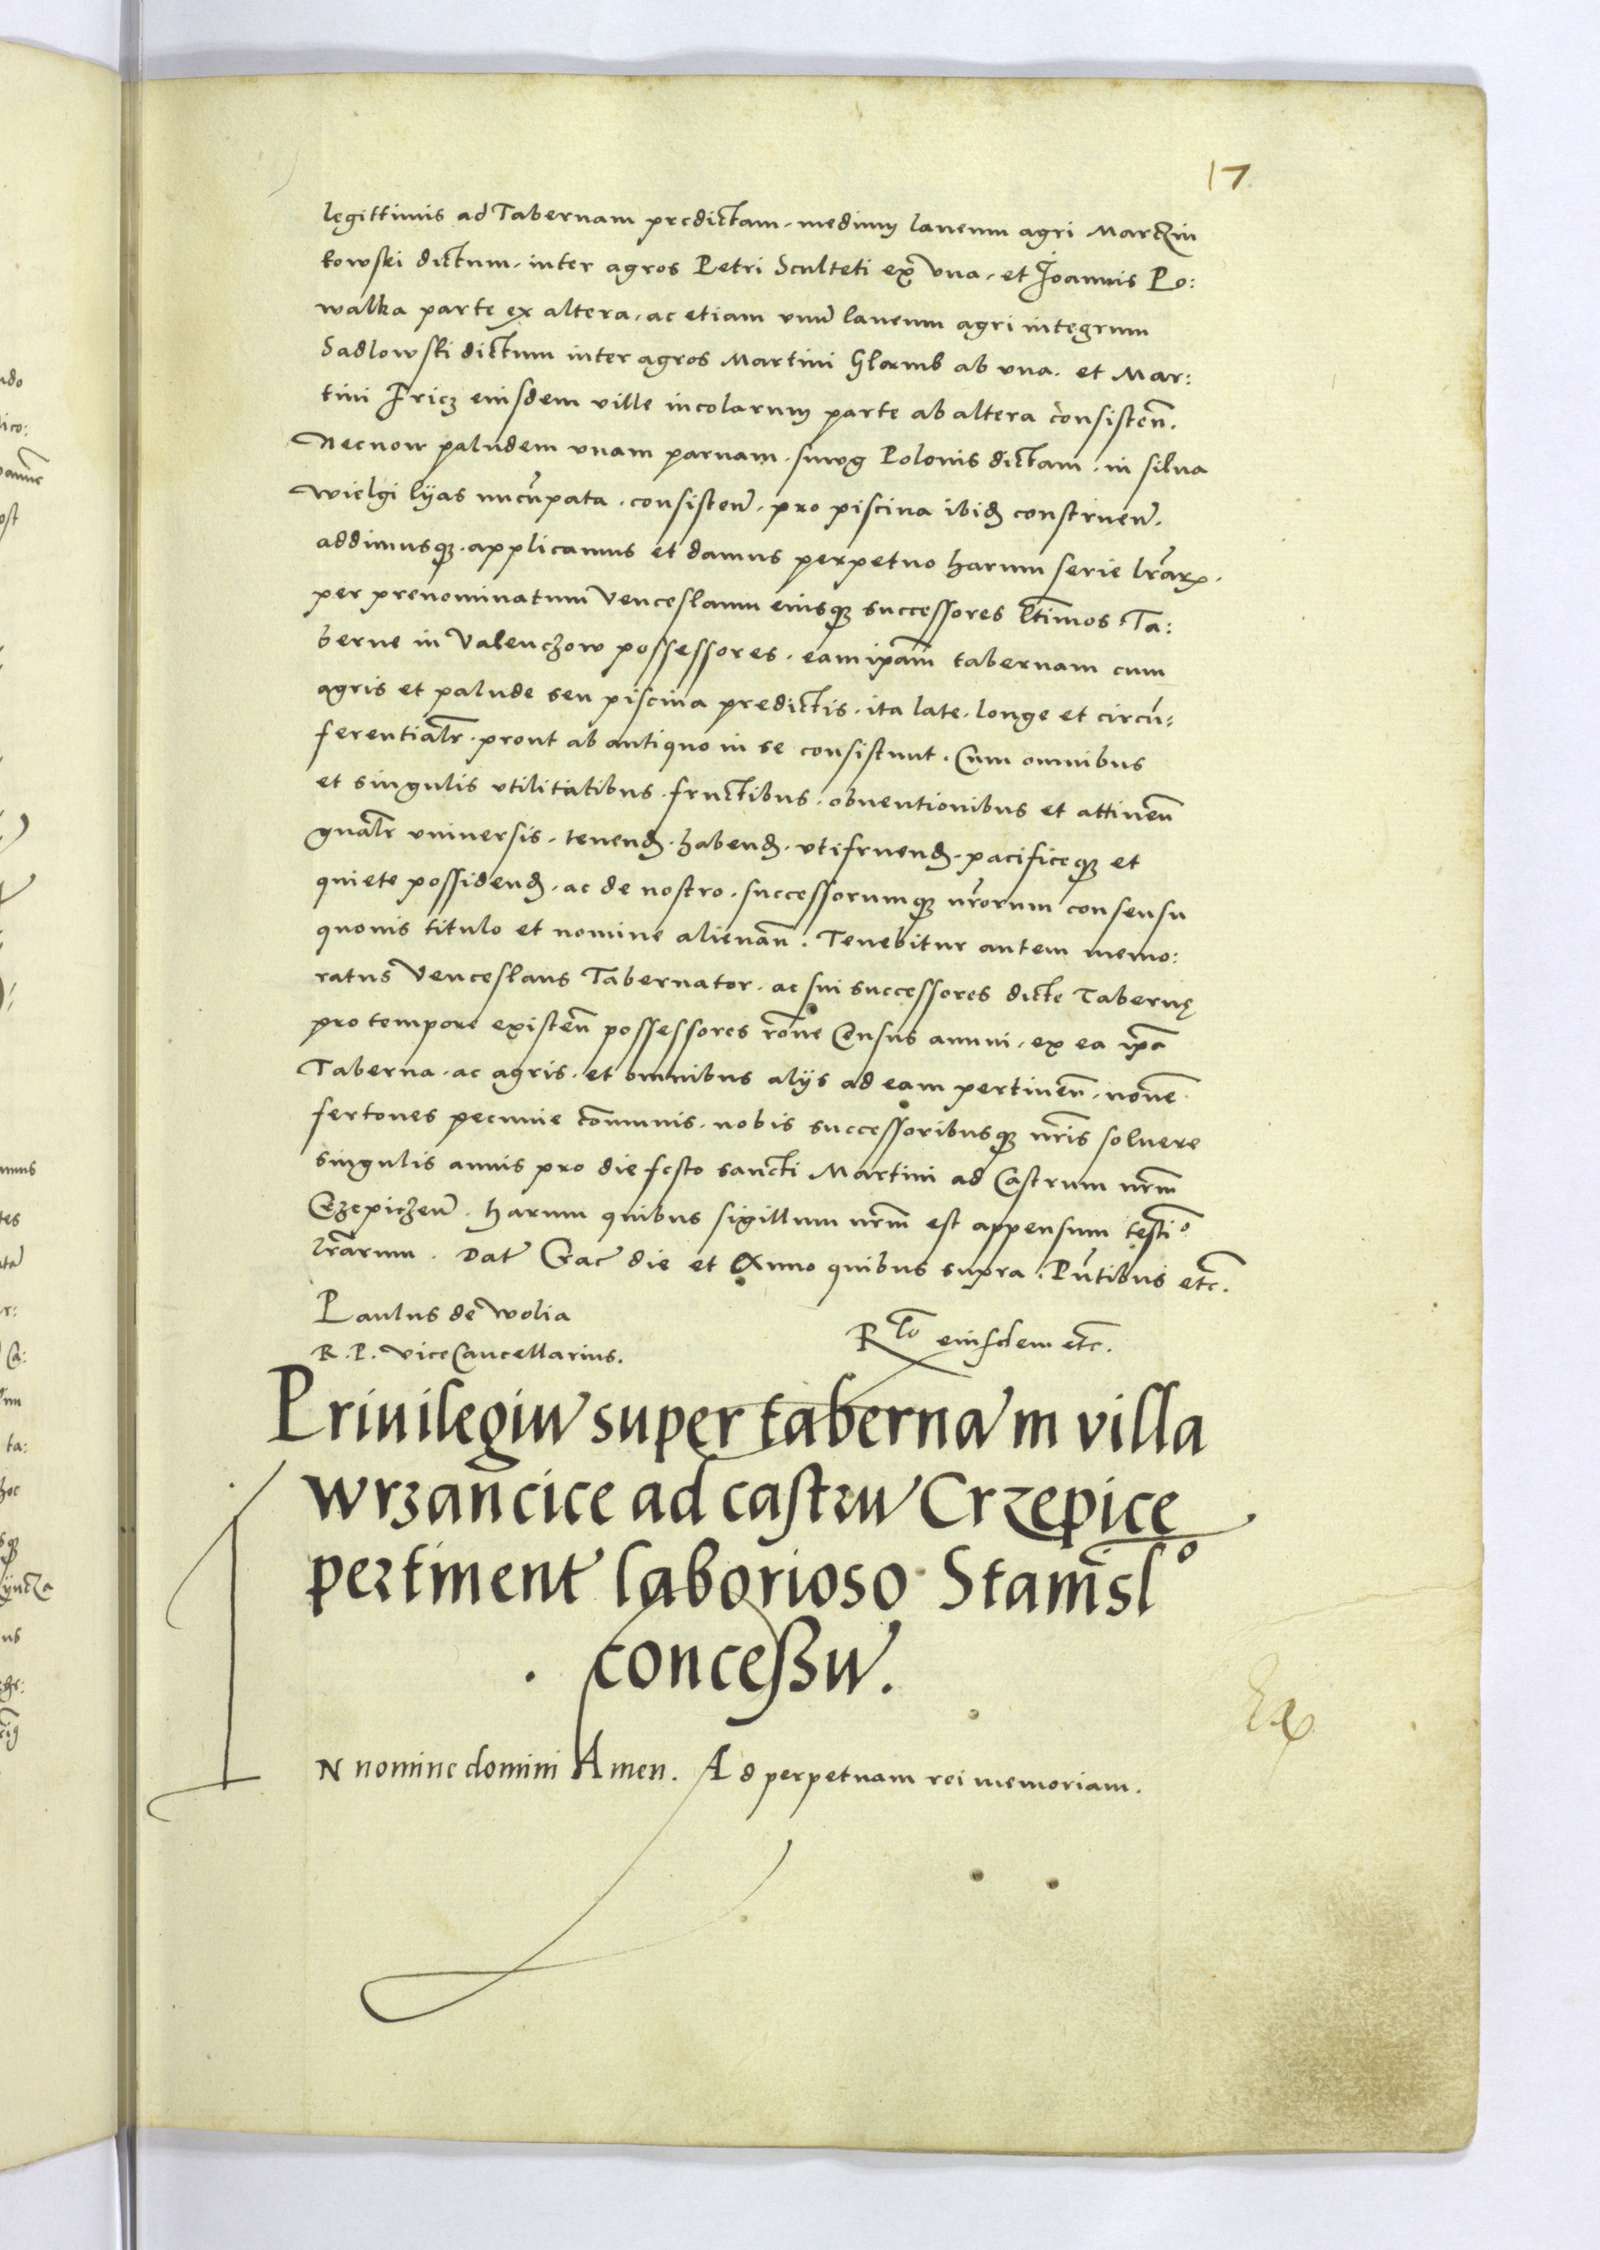 17
legittimis ad Tabernam predictam. mediuȝ laneum agri Martzin
kowski dictum. inter agros Petri Sculteti ex vna. et Joannis Po:
walka parte ex altera. ac etiam vnū laneum agri integrum
Sadlowski dictum inter agros Martini Glamb ab vna. et Mar:
tini Fricz eiusdem ville incolarum parte ab altera consisteñ.
Necnon paludem vnam paruam. smug Polonis dictam. in silua
wielgi lyas nucūpata. consisteñ. pro piscina ibiđ construeñ.
addimusqȝ. applicamus et damus perpetuo harum serie lr̄arꝝ.
per prenominatum Venceslaum eiusqȝ successores ltimos Ta:
berne in Valenczow possessores. eam ip̄am tabernam cum
agris et palude seu piscina predictis. ita late. longe et circū:
ferentialr̄. prout ab antiquo in se consistunt. Cum omnibus
et singulis vtilitatibus. fructibus. obuentionibus et attineñ
gn̄alr̄ vniuersis. tenenđ. habenđ. vtifruenđ. pacificeqȝ et
quiete possidenđ. ac de nostro. successorumqȝ nr̄orum consensu
quouis titulo et nomine alienañ. Tenebitur autem memo:
ratus Venceslaus Tabernator. ac sui successores dicte Tabernę
pro tempore existeñ possessores rōne Census annui. ex ea ip̄a
Taberna. ac agris. et omnibus alijs ad eam pertineñ. nouē
fertones pecunie cōmunis. nobis successoribusqȝ nr̄is soluere
singulis annis pro die festo sancti Martini ad Castrum nr̄m
Crzepiczeñ. harum quibus sigillum nr̄m est appensum testiº
lr̄arum. Dat̄ Crac̄ die et Anno quibus supra. Pn̄tibus etc̄.
Paulus de Wolia
R. P. ViceCancellarius.
Rlō eiusdem etc̄.
Priuilegiū super tabernā in villa
wrzan̄cice ad castrū Crzepice
pertinent̄ laborioso Stanislº
conceßū.
IN nomine domini Amen. Ad perpetuam rei memoriam.